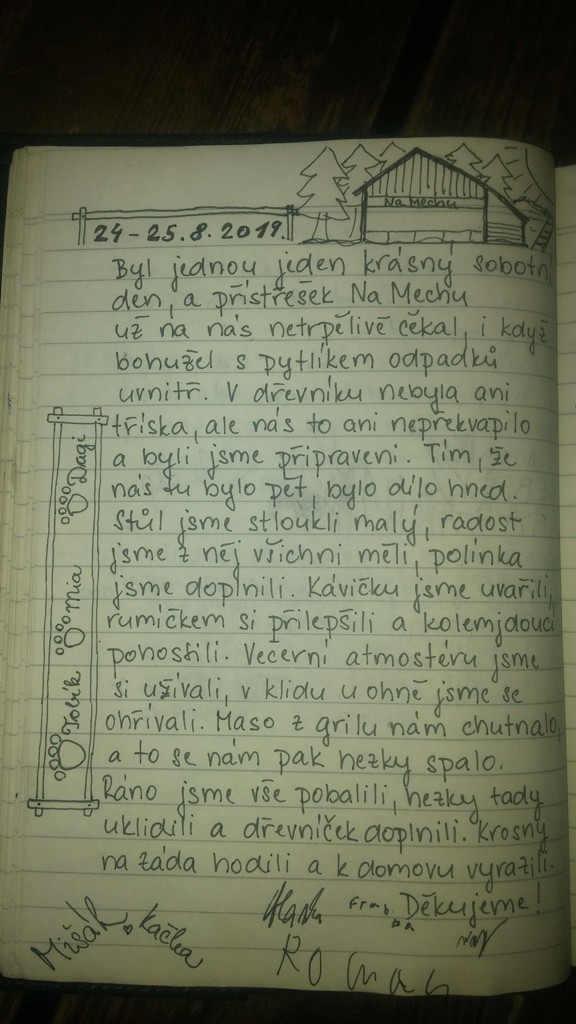 Na Mechu
24-25.8.2019.
Byl jednou jeden krásný sobotní
den, a přístřešek Na Mechu
už na nás netrpělivě čekal, i když
bohužel s pytlíkem odpadků
uvnitř. V dřevníku nebyla ani
tříska, ale nás to ani nepřekvapilo
a byli jsme připraveni. Tím, že
nás tu bylo pět, bylo dílo hned.
Stůl jsme stloukli malý, radost
jsme z něj všichni měli, polínka
jsme doplnili. Kávičku jsme uvařili,
rumíčkem si přilepšili a kolemjdoucí
pohostili. Večerní atmosféru jsme
si užívali, v klidu u ohně jsme se
ohřívali. Maso z grilu nám chutnalo,
a to se nám pak hezky spalo.
Ráno jsme vše pobalili, hezky tady
uklidili a dřevníček doplnili. Krosny
na záda hodili a k domovu vyrazili.
Děkujeme!
Dagi
Mia
Tobík
Mišák
Kačka
Roman